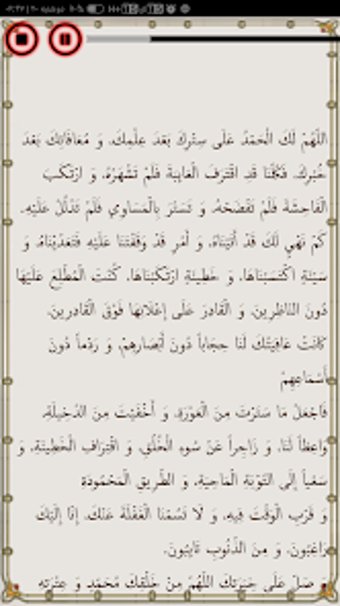 اللَّهُمَّ لَكَ الْحَمْدُ عَلَى سِتْرِكَ بَعْدَ عِلْمِكَ، وَ مُعَافَاتِكَ بَعْدَ
خُبْرِكَ، فَكُلُّنَا قَدِ اقْتَرَفَ الْعَائِبَةَ فَلَمْ تَشْهَرْهُ، وَ ارْتَكَبَ
الْفَاحِشَةَ فَلَمْ تَفْضَحْهُ، وَ تَسَتَّرَ بِالْمَسَاوِي فَلَمْ تَدْلُلْ عَلَيْهِ.
كَمْ نَهْيٍ لَكَ قَدْ أَتَيْنَاهُ، وَ أَمْرٍ قَدْ وَقَفْتَنَا عَلَيْهِ فَتَعَدَّيْنَاهُ، وَ
سَيِّئَةٍ اكْتَسَبْنَاهَا، وَ خَطِيئَةٍ ارْتَكَبْنَاهَا، كُنْتَ الْمُطَّلِعَ عَلَيْهَا
دُونَ النَّاظِرِينَ، وَ الْقَادِرَ عَلَى إِعْلَانِهَا فَوْقَ الْقَادِرِينَ،
كَانَتْ عَافِيَتُكَ لَنَا حِجَاباً دُونَ أَبْصَارِهِمْ، وَ رَدْماً دُونَ
أَسْمَاعِهِمْ
فَاجْعَلْ مَا سَتَرْتَ مِنَ الْعَوْرَةِ، وَ أَخْفَيْتَ مِنَ الدَّخِيلَةِ،
وَاعِظاً لَنَا، وَ زَاجِراً عَنْ سُوءِ الْخُلُقِ، وَ اقْتِرَافِ الْخَطِيئَةِ، وَ
سَعْياً إِلَى التَّوْبَةِ الْمَاحِيَةِ، وَ الطَّرِيقِ الْمَحْمُودَةِ
وَ قَرِّبِ الْوَقْتَ فِيهِ، وَ لَا تَسُمْنَا الْغَفْلَةَ عَنْكَ، إِنَّا إِلَيْكَ
رَاغِبُونَ، وَ مِنَ الذُّنُوبِ تَائِبُونَ.
وَ صَلِّ عَلَى خِيَرَتِكَ اللَّهُمَّ مِنْ خَلْقِكَ مُحَمَّدٍ وَ عِتْرَتِهِ